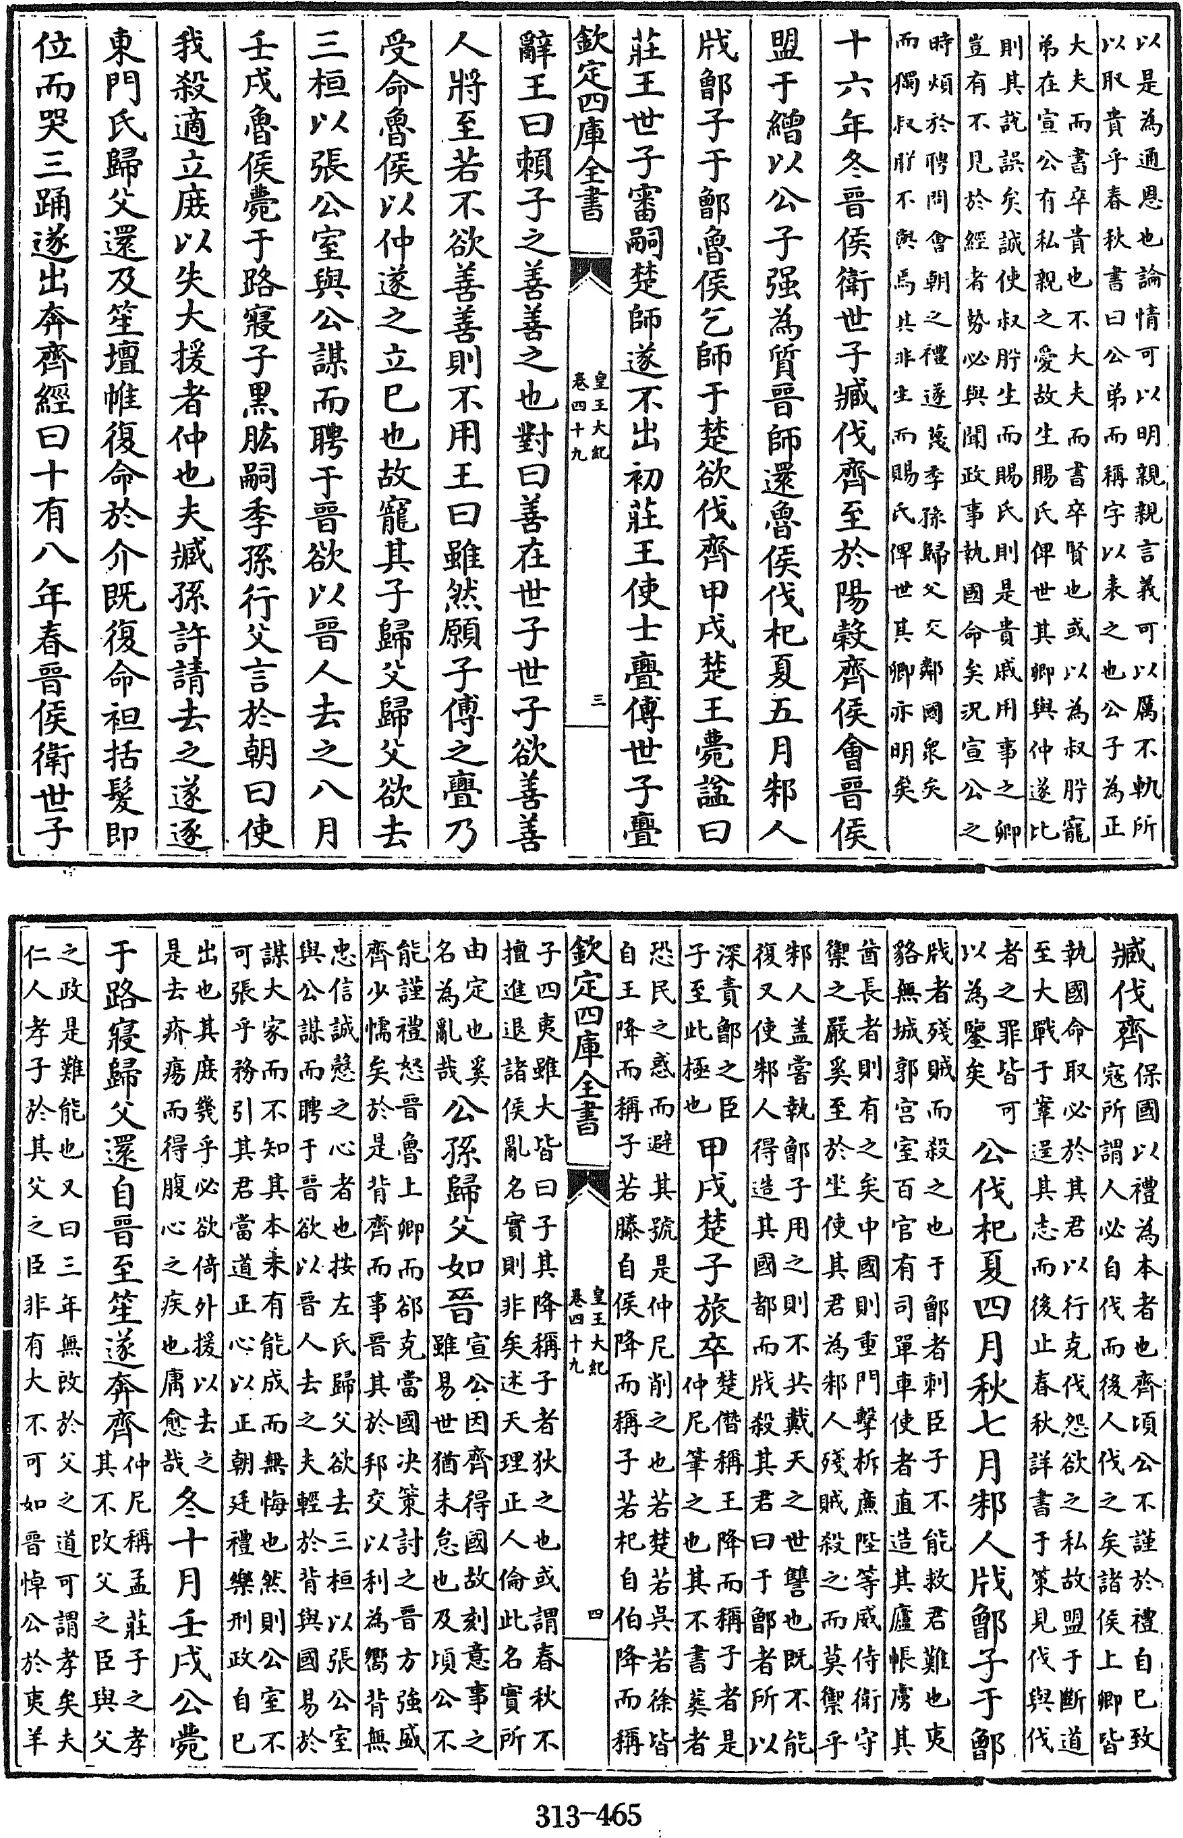 以是為通恩也論情可以明親親言義可以厲不軌所
以取貴乎春秋書曰公弟而稱字以表之也公子為正
大夫而書卒貴也不大夫而書卒賢也或以為叔肸寵
弟在宣公有私親之愛故生賜氏俾世其卿與仲遂比
則其說誤矣誠使叔肸生而賜氏則是貴戚用事之卿
豈有不見於經者勢必與聞政事執國命矣況宣公之
時煩於聘問會朝之禮遂蔑季孫歸父交鄰國衆矣
而獨叔肸不與焉其非生而賜氏俾世其卿亦明矣
十六年冬晉侯衛世子臧伐齊至於陽穀齊侯會晉侯
盟于繒以公子强為質晉師還魯侯伐杞夏五月邾人
戕鄫子于鄫魯侯乞師于楚欲伐齊甲戌楚王薨諡曰
莊王世子審嗣楚師遂不出初莊王使士亹傅世子亹
欽定四庫全書
皇王大紀
卷四十九
三
辭王曰賴子之善善之也對曰善在世子世子欲善善
人將至若不欲善善則不用王曰雖然願子傅之亹乃
受命魯侯以仲遂之立已也故寵其子歸父歸父欲去
三桓以張公室與公謀而聘于晉欲以晉人去之八月
壬戌魯侯薨于路寢子黑肱嗣季孫行父言於朝曰使
我殺適立庶以失大援者仲也夫臧孫許請去之遂逐
東門氏歸父還及笙壇帷復命於介既復命袒括髮即
位而哭三踊遂出奔齊經曰十有八年春晉侯衛世子
臧伐齊
保國以禮為本者也齊頃公不謹於禮自已致
寇所謂人必自伐而後人伐之矣諸侯上卿皆
執國命取必於其君以行克伐怨欲之私故盟于斷道
至大戰于鞌逞其志而後止春秋詳書于策見伐與伐
者之罪皆可
以為鑒矣
公伐杞夏四月秋七月邾人戕鄫子于鄫
戕者殘賊而殺之也于鄫者刺臣子不能救君難也夷
貉無城郭宮室百官有司單車使者直造其廬帳虜其
酋長者則有之矣中國則重門擊柝廉陛等威侍衛守
禦之嚴奚至於坐使其君為邾人殘賊殺之而莫禦乎
邾人盖嘗執鄫子用之則不共戴天之世讐也既不能
復又使邾人得造其國都而戕殺其君曰于鄫者所以
深責鄫之臣
子至此極也
甲戌楚子旅卒
楚僭稱王降而稱子者是
仲尼筆之也其不書葬者
恐民之惑而避其號是仲尼削之也若楚若吳若徐皆
自王降而稱子若滕自侯降而稱子若杞自伯降而稱
欽定四庫全書
皇王大紀
卷四十九
四
子四夷雖大皆曰子其降稱子者狄之也或謂春秋不
擅進退諸侯亂名實則非矣述天理正人倫此名實所
由定也奚
名為亂哉
公孫歸父如晉
宣公因齊得國故刻意事之
雖易世猶未怠也及頃公不
能謹禮怒晉魯上卿而郤克當國決策討之晉方強盛
齊少懦矣於是背齊而事晉其於邦交以利為嚮背無
忠信誠慤之心者也按左氏歸父欲去三桓以張公室
與公謀而聘于晉欲以晉人去之夫輕於背與國易於
謀大家而不知其本未有能成而無悔也然則公室不
可張乎務引其君當道正心以正朝廷禮樂刑政自已
出也其庶幾乎必欲倚外援以去之
是去疥瘍而得腹心之疾也庸愈哉
冬十月壬戌公薨
于路寢歸父還自晉至笙遂奔齊
仲尼稱孟莊子之孝
其不改父之臣與父
之政是難能也又曰三年無改於父之道可謂孝矣夫
仁人孝子於其父之臣非有大不可如晉悼公於夷羊
313-465